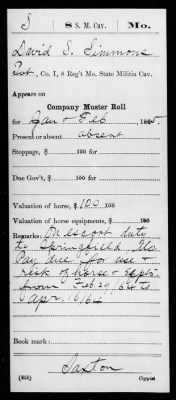 S | 8 S. M. Cav. | Mo.
David S. Simmons
Pvt., Co. I, 8 Reg't Mo. State Militia Cav.
Appears on
Company Muster Roll
for Jan & Feb, 1865.
Present or absent absent
Stoppage, $ 100 for
Due Gov't, $ 100 for
Valuation of horse, $100 100
Valuation of horse equipments, $ 100
Remarks: On escort duty
to Springfield, Mo.
Pay due for use &
risk of horse & Eqpts.
from Feb 29/64 to
Apr. 16/64
Book mark:
Saxton
(858) Copyist